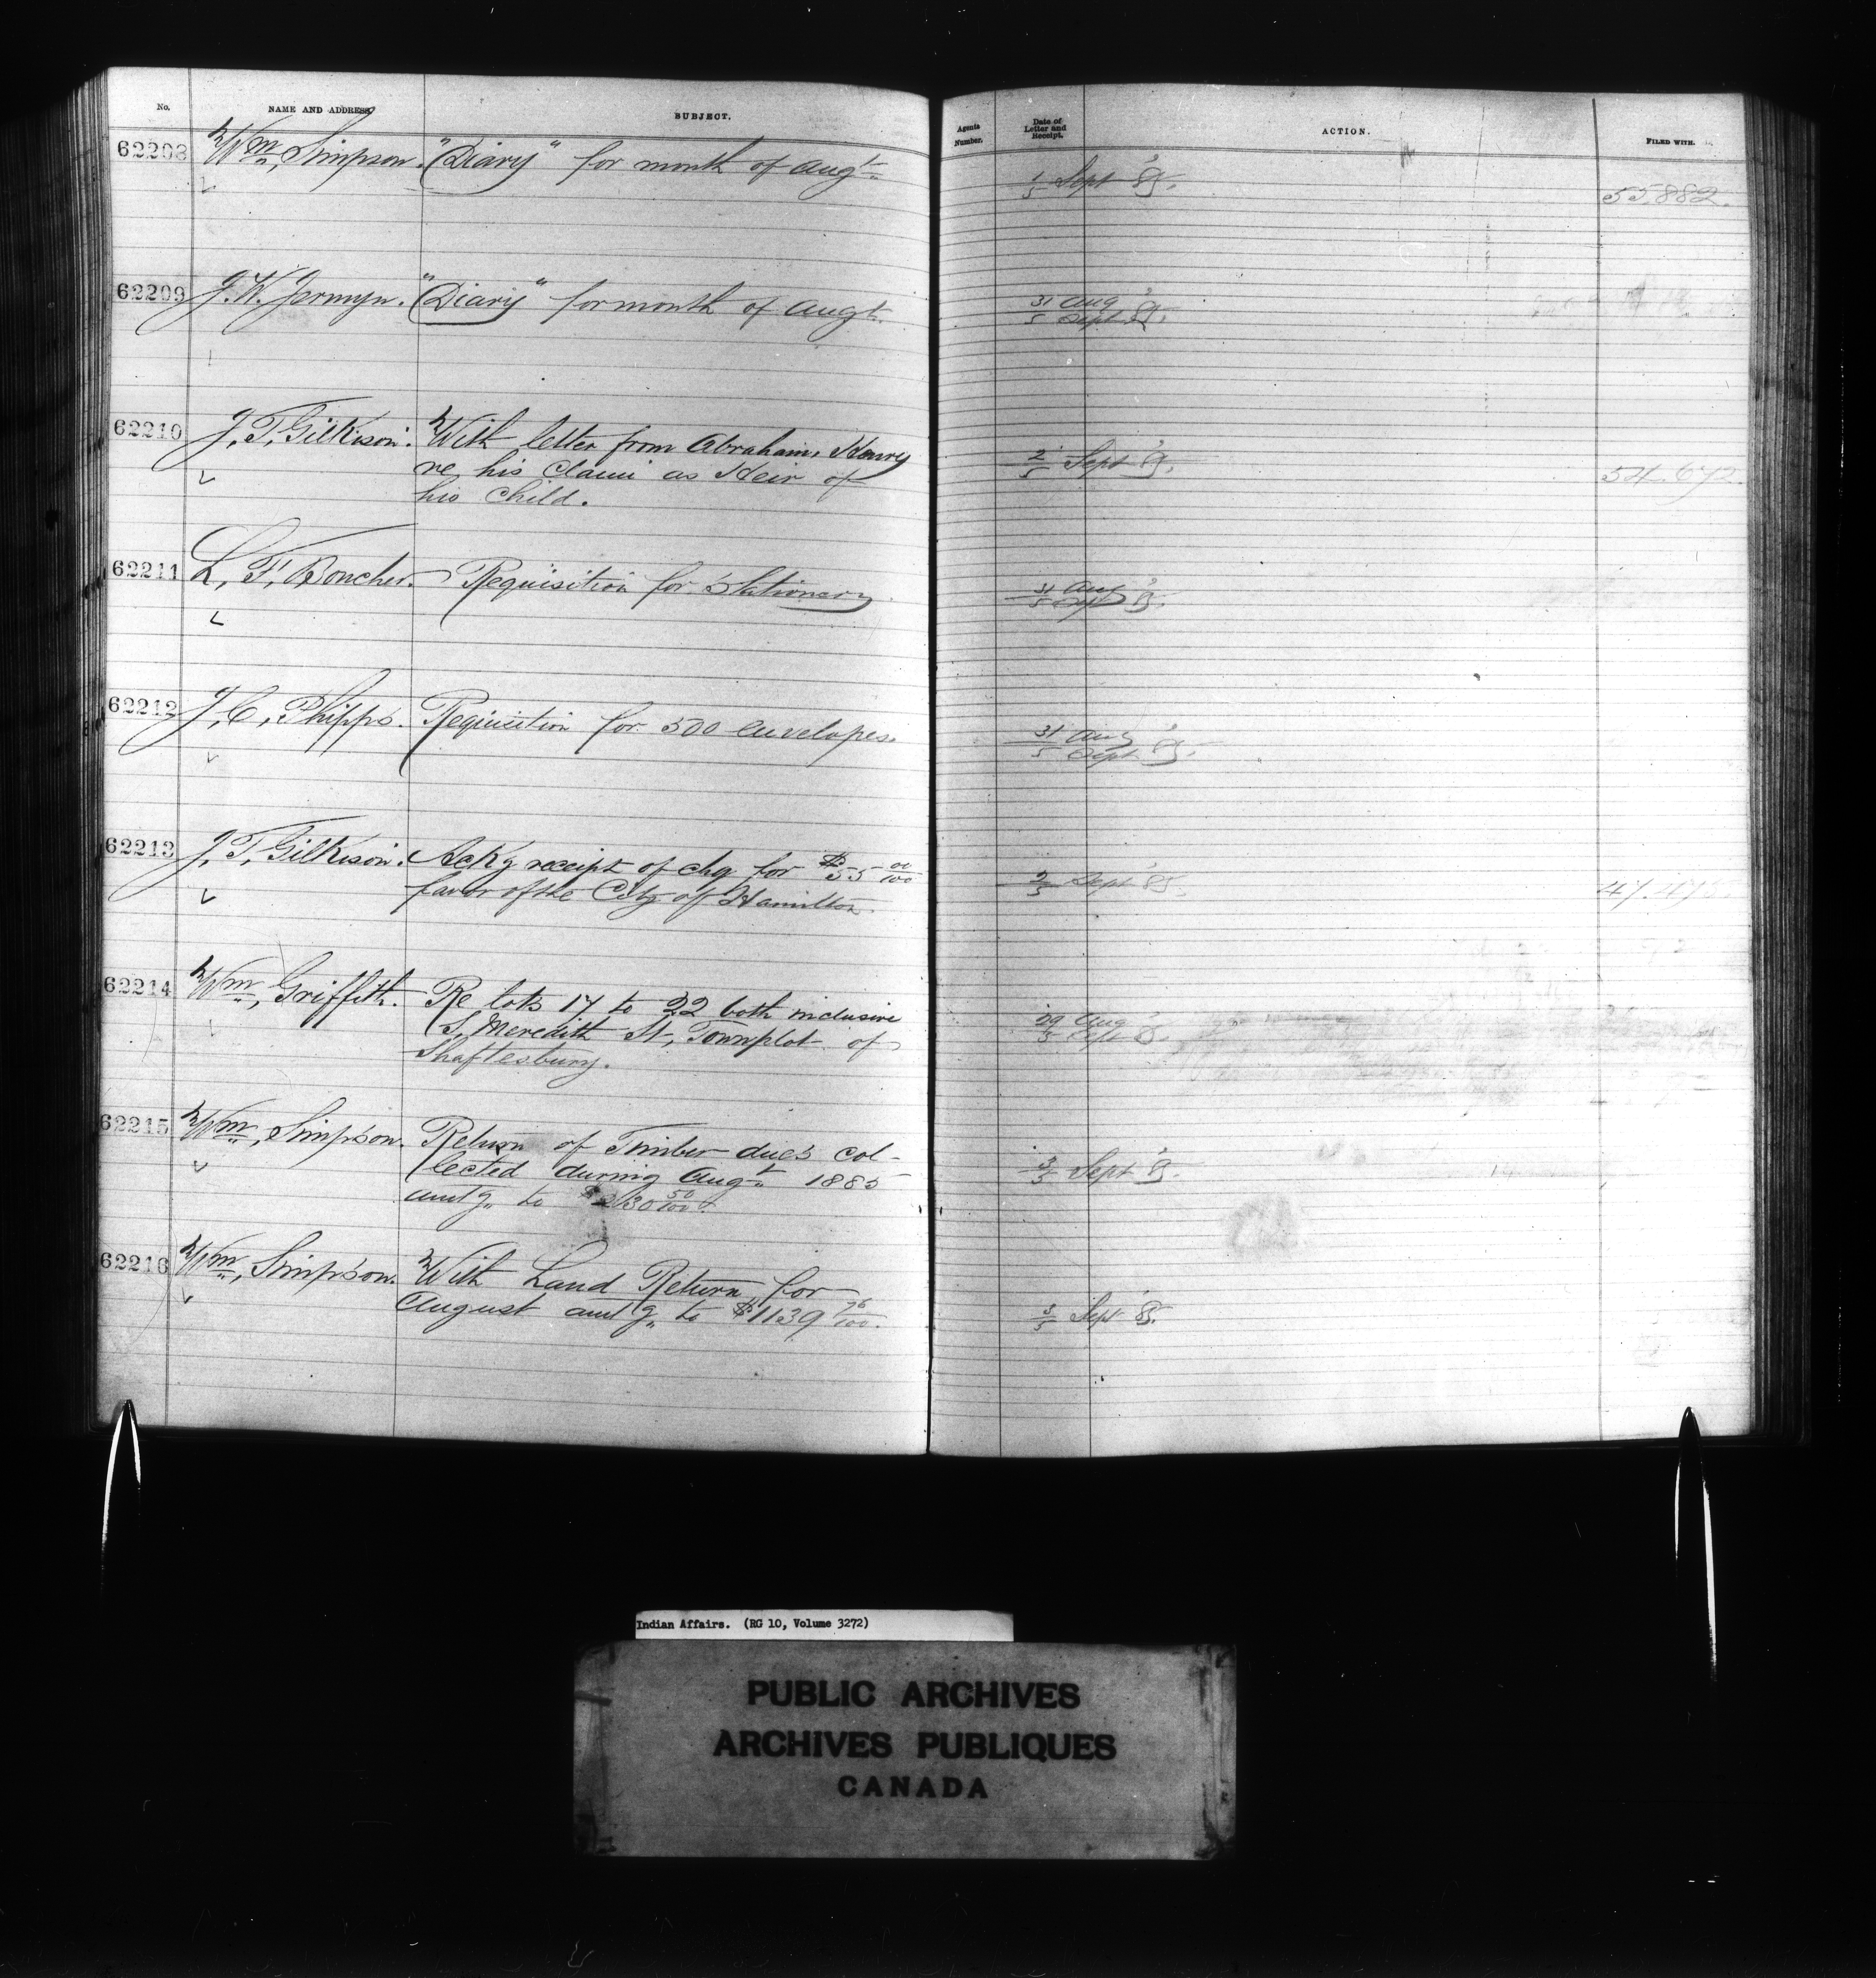 No. NAME AND ADDRESS SUBJECT. Agents Number. Date of Letter and Receipt. ACTION. FILED WITH.
62208 Wm, Simpson. "Diary" for month of Augt. 1/5 Sept '85. 55,882.
62209 J. W. Jermyn. "Diary" for month of Augt. 31 Aug / 5 Sept '85.
62210 J. T. Gilkison. With letter from Abraham, Henry 2/5 Sept '85. 54.672.
re, his Claim as Heir of
his Child.
62211 L, F, Boucher. Requisition for Stationery. 31 Aug / 5 Sept '85.
62212 J, C, Phipps. Requisition for 500 envelopes. 31 Aug / 5 Sept '85.
62213 J, T, Gilkison. Ackg receipt of chq for $55 00/100 2/5 Sept 85.
favor of the City of Hamilton.
62214 Wm, Griffith. Re lots 17 to 22 both inclusive 29 Aug / 5 Sept 85.
S, Meredith St, Townplot of
Shaftesbury.
62215 Wm, Simpson. Return of Timber dues col- 3/5 Sept '85.
lected during Augt 1885
amtg to $ 30 50/100
62216 Wm, Simpson. With Land Return, for 3/5 Sept '85.
August amtg. to $1139 76/100.
Indian Affairs. (RG 10, Volume 3272)
PUBLIC ARCHIVES
ARCHIVES PUBLIQUES
CANADA